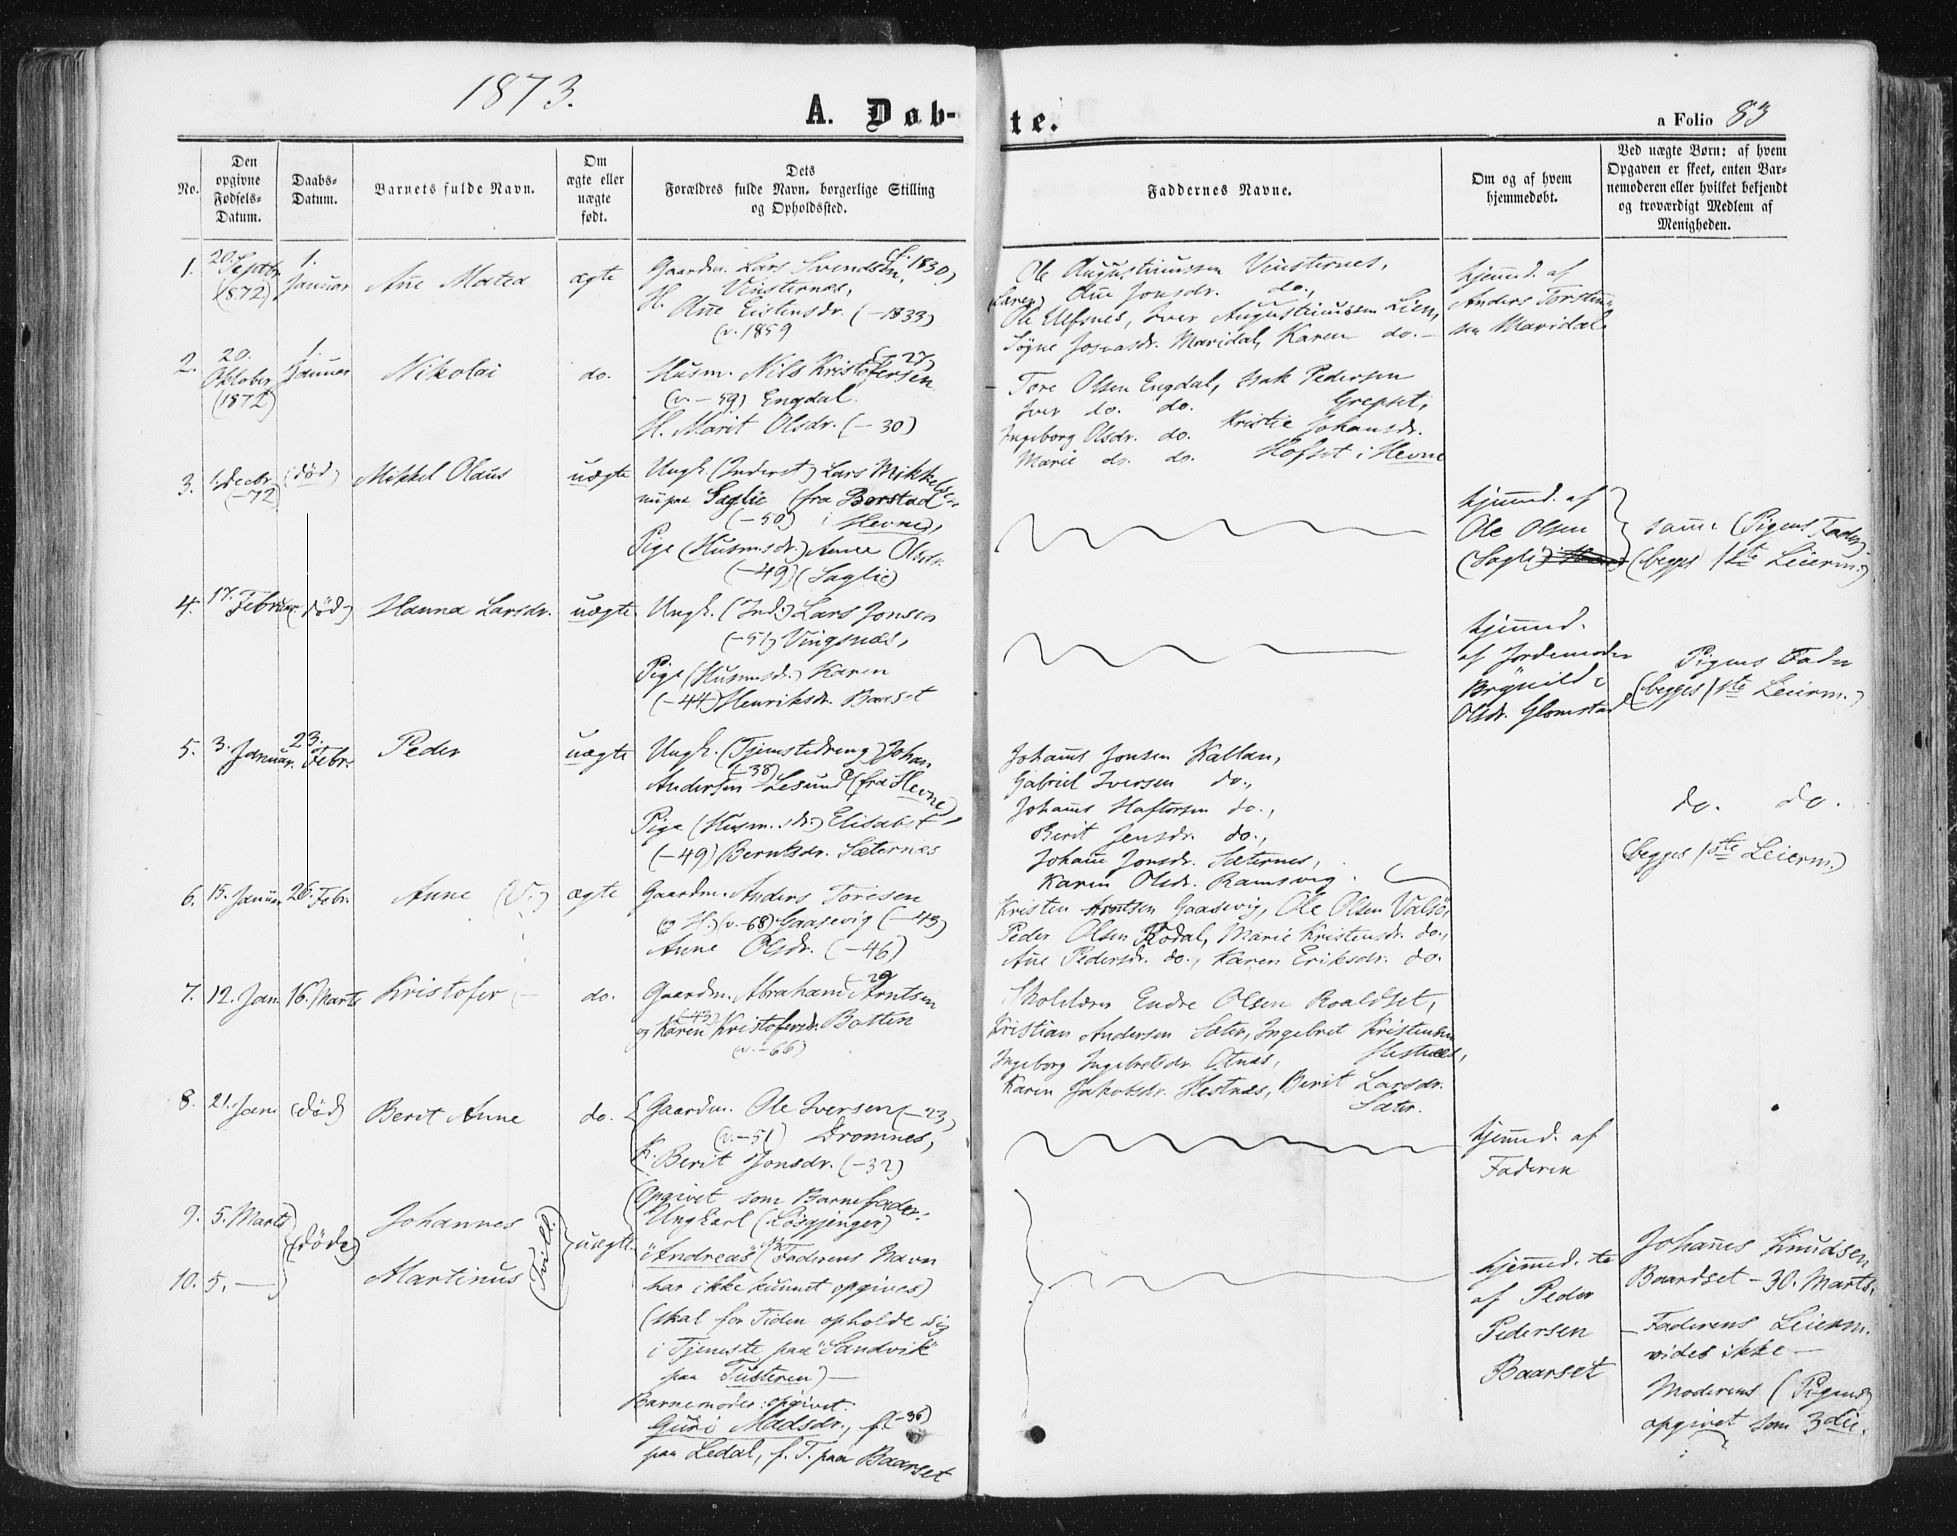 1873.
A. Døbte.
a Folio 83
No.
Den opgivne Fødsels-Datum.
Daabs-Datum.
Barnets fulde Navn.
Om ægte eller uægte født.
Dets Forældres fulde Navn, borgerlige Stilling og Opholdssted.
Faddernes Navne.
Om og af hvem hjemmedøbt.
Ved uægte Børn: af hvem Opgaven er skeet, enten Barnemoderen eller hvilket bekjendt og troværdigt Medlem af Menigheden.
1.
20. Septbr. (1872)
1. Januar
Ane Matea
ægte
Gaardm. Lars Svendsen, (f. 1830)
Vinsternes,
H. Ane Eistensdr. (-1833)
(v. 1859
Ole Augustinussen Vinsternes,
(Laren) Ane Jonsdr. do.,
Ole Ulfsnes, Iver Augustinussen Lien,
Søgne Josvasdr. Maridal, Karen do. -
hjemmd. af
Anders Torsten-
sen Maridal
2.
20. Oktober (1872)
1. Januar
Nikolai
do.
Husm. Nils Kristofersen (- 27)
(v. - 59) Engdal.
H. Marit Olsdr. (- 30)
Tore Olsen Engdal, Isak Pedersen
Iver do. do. Grepset,
Ingeborg Olsdr. do. Kristie Johansdr.
Marie do. do. Hofset i Hevne
3.
1. Decbr. (-72)
(død)
Mikkel Olaus
uægte
Ungk. (Inderst) Lars Mikkelsen
nu paa Saglie (fra Børstad
(-50) i Hevne),
Pige (Husmsdr.) Anne Olsdr.
(-49) (Saglie)
hjemmd. af
Ole Olsen
(Sagli)
samme (Pigens Fader)
(begges 1ste Leierm.)
4.
17. Februar
(død)
Hanna Larsdr.
uægte
Ungk. (Ind.) Lars Jonsen
(-51) Vingsnæs,
Pige (Husmsdr.) Karen
(-44) Henriksdr. Baarset
hjemmd.
af Jordemoder
Brynild
Olsdr. Glomstad
Pigens Fader
(begges 1ste Leierm.)
5.
3. Januar.
23. Febr.
Peder
uægte
Ungk. (Tjenstedreng) Johan
(-38)
Andersen Lesund (fra Hevne)
Pige (Husm.sdr.) Elisabet
(-49) Berntsdr. Sæternes
Johans Jonsen Kallan,
Gabriel Iversen do.,
Johans Haftorsen do.,
Berit Jensdr. do.,
Johane Jonsdr. Sæternes,
Karen Olsdr. Ramsvig.
do. do.
(begges 1ste Leierm.)
6.
15. Januar
26. Febr.
Anne (V.)
ægte
Gaardm. Anders Toresen
(v. -68) Gaasevig (-43)
Anne Olsdr. (-46)
Kristen Arntsen Gaasevig, Ole Olsen Valsø,
Peder Olsen Rodal, Marie Kristensdr. do.,
Ane Pedersdr. do., Karen Eriksdr. do.
7.
12. Jan.
16. Marts
Kristofer
do.
Gaardm. Abraham Arntsen (-29
(-43)
og Karen Kristofersdr. Botten
(v. -66)
Skolelærer Endre Olsen Roaldset,
Kristian Andersen Sæter, Ingebret Kristensen
Ingeborg Ingebretsdr. Otnes, Hestnes,
Karen Jakobsdr. Hestnæs, Berit Larsdr.
Sæter.
8.
21. Jan
(død)
Berit Anne
do.
Gaardm. Ole Iversen (-23)
(v. -51) Dromnes,
K. Berit Jonsdr. (-32)
hjemmd. af
Faderen
9. 5. Marts
(døde)
Johannes
(Tvill.)
uægte
10. 5. -
Martinus
Opgivet som Barnefader:
Ungkarl (Løsgjenger)
"Andreas" (Faderens Navn
har ikke kunnet opgives)
(skal for Tiden opholde sig
i Tjeneste paa "Sandvik"
paa Tusteren) -
Barnemoder: opgivet:
Guri Madsdr., f. (-36)
paa Ledal, f. T. paa Baarset
hjemmed. te
af Peder
Pedersen
Baarset
Johannes Knudsen
Baardset - 30. Marts.
- Faderens Leierm.
vides ikke -
Moderens (Pigens)
opgivet som 3die.